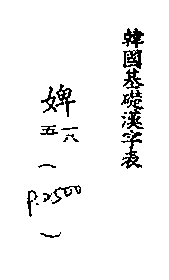 韓國基礎漢字表
婢
五一八
(P.2500)